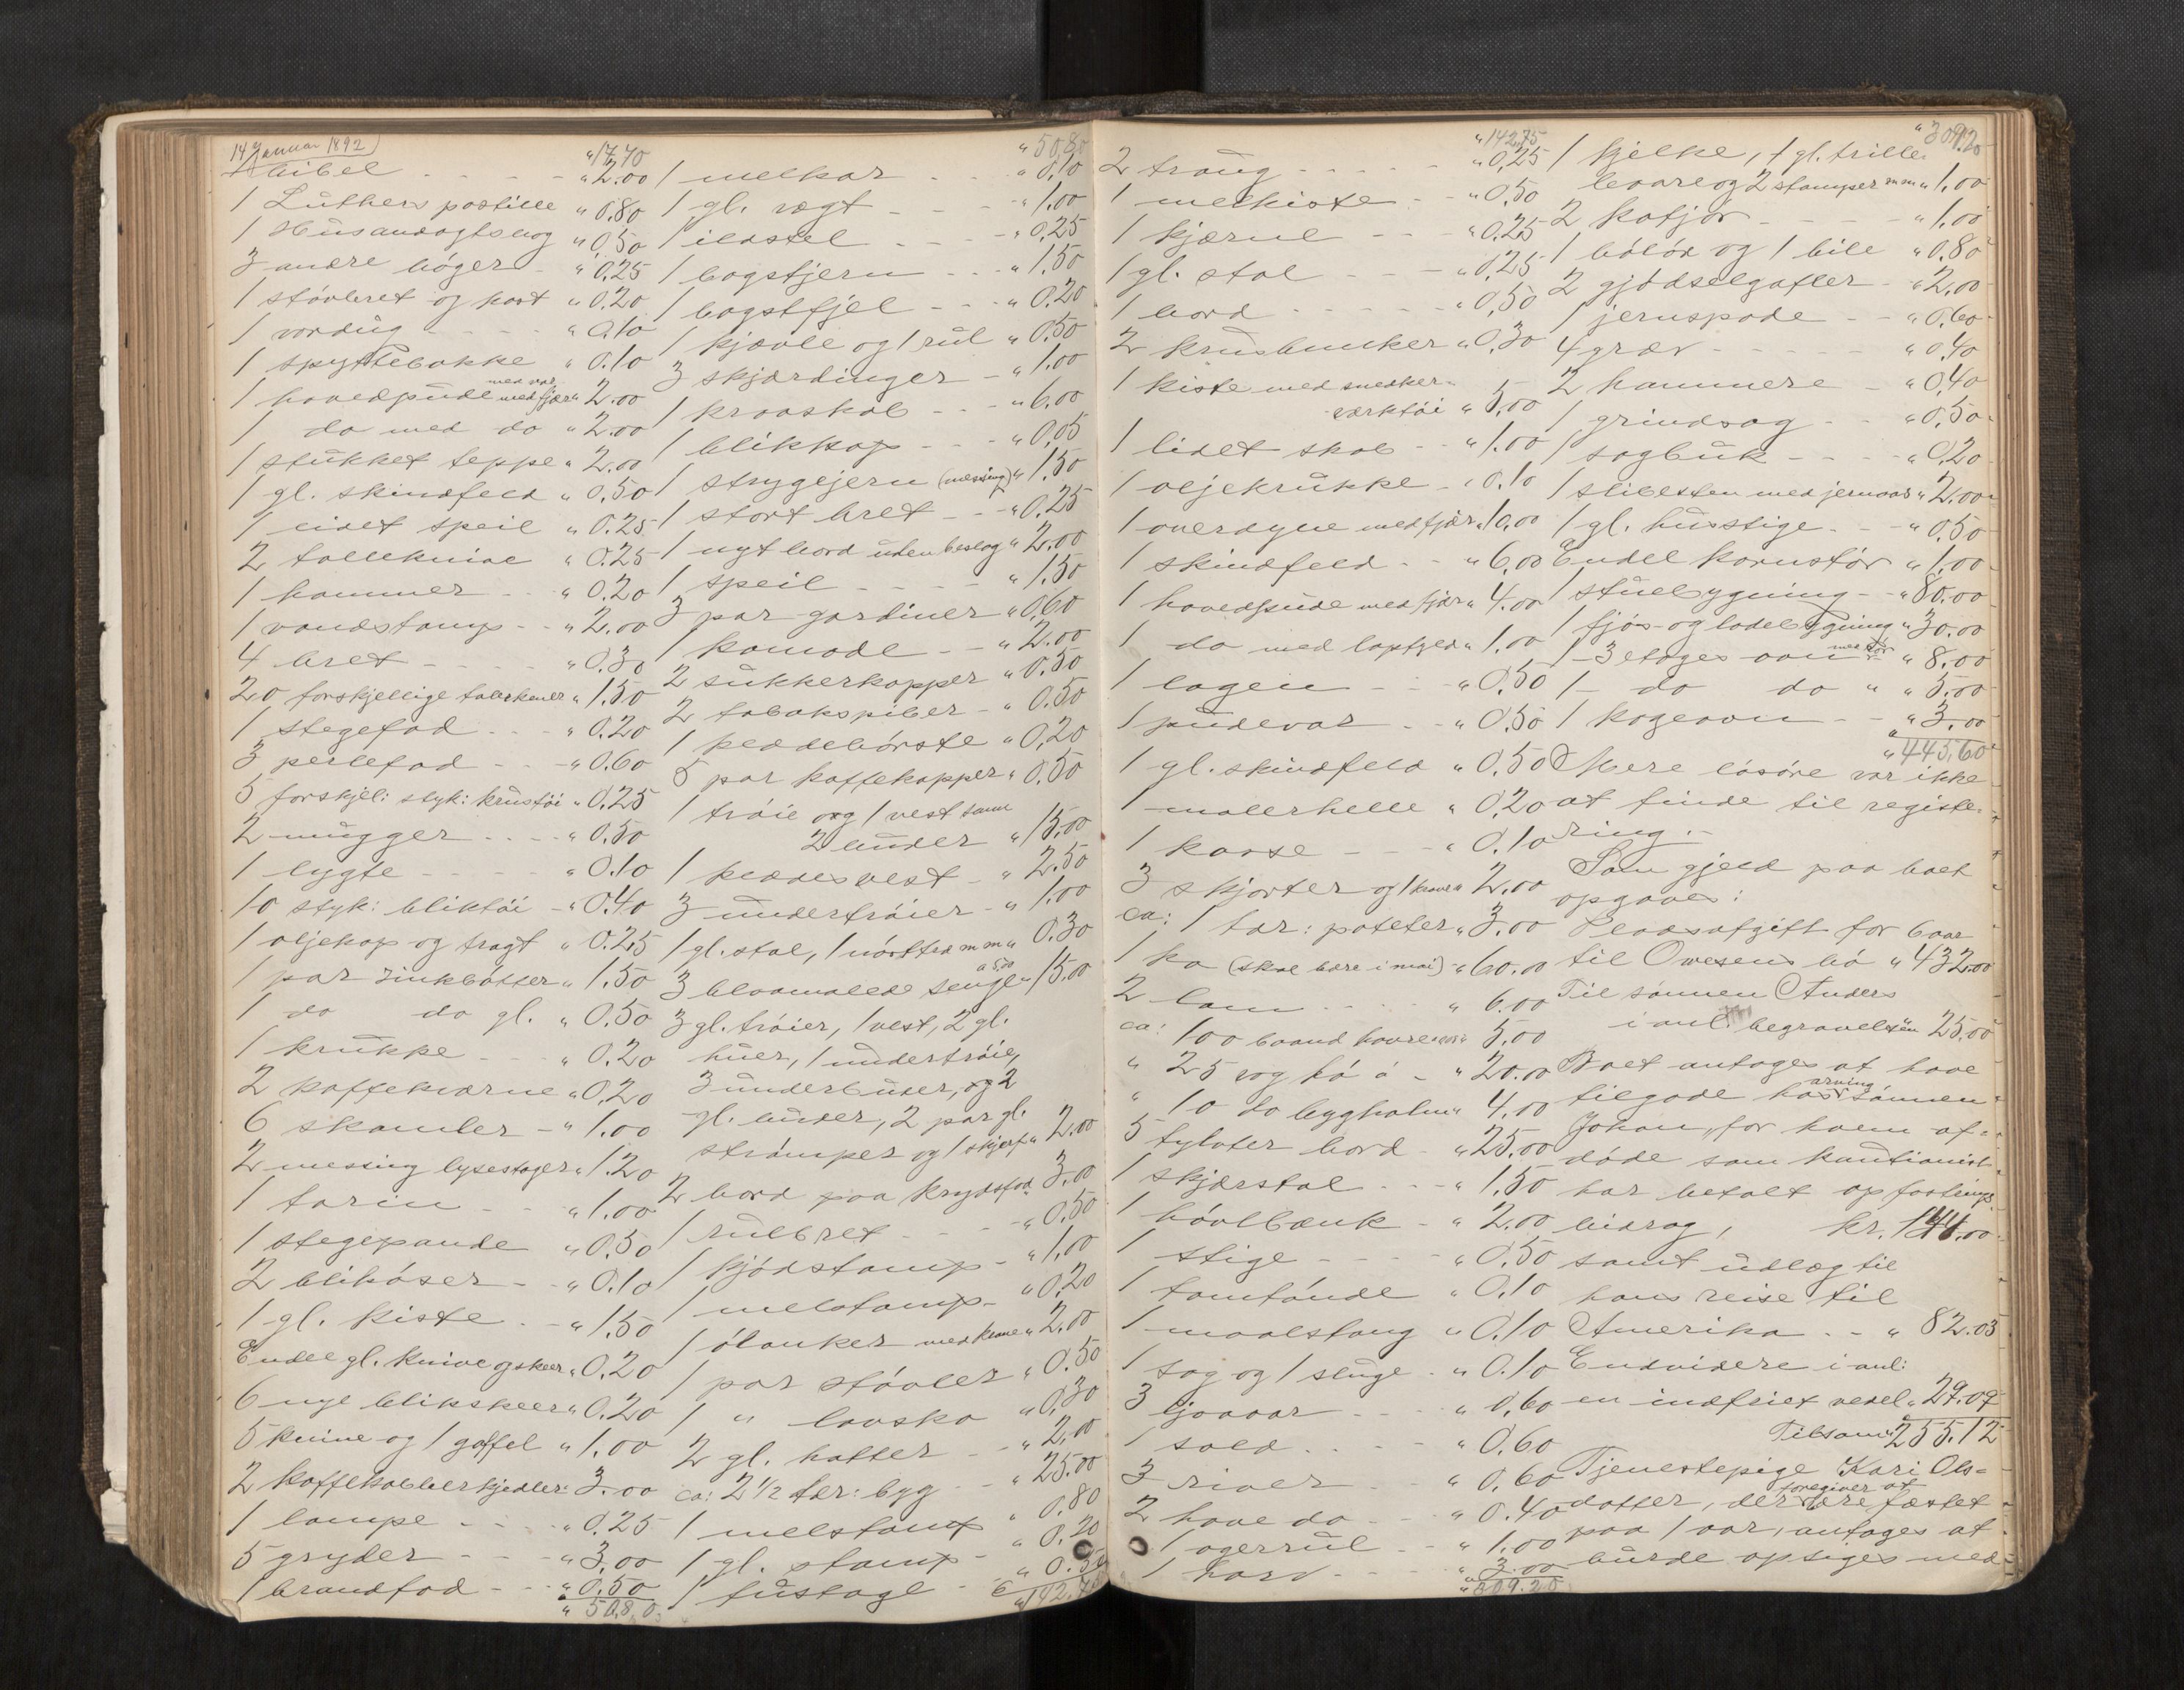 14 Januar 1892
" 17.40
1 bibel " 2.00
1 Luthers postille " 0.80
1 Husandagtsbog " 0.50
3 andre bøger " 0.25
1 støvbret og kost " 0.20
1 " 0.10
1 spyttebakke " 0.10
1 hovedpude med var med fjær " 2.00
1 do med do " 2.00
1 stukket teppe " 2.00
1 gl. skindfeld " 0.50
1 lidet speil " 0.25
2 tolleknive " 0.25
1 hammer " 0.20
1 vandstamp " 2.00
4 bret " 0.30
20 forskjellige talerkener " 1.50
1 stegefad " 0.20
3 perlefad " 0.60
5 forskjel: styk: krustøi " 0.25
2 mugger " 0.50
1 lygte " 0.10
10 styk: bliktøi " 0.40
1 oljekop og tragt " 0.25
1 par zinkbøtter " 1.50
1 do do gl. " 0.50
1 krukke " 0.20
2 kaffekværne " 0.20
6 skamler " 1.00
2 messing lysestager " 1.20
1 tarin " 1.00
1 stegepande " 0.50
2 blikøser " 0.10
1 gl. kiste " 1.50
Endel gl. knive og skeer " 0.20
6 nye blikskeer " 0.20
5 knive og 1 gaffel " 1.00
2 kaffekobberkjedler: 3.00
1 lampe " 0.25
5 gryder " 3.00
1 brandfod " 0.50
" 50,80
" 50.80
1 melkar " 0.10
1 gl. vægt " 1.00
1 ildstel " 0.25
1 bagstjern " 1.50
1 bagstfjel " 0.20
1 kjævle og 1 rul " 0.50
3 skjærdinger " 1.00
1 kraaskab " 6.00
1 blikkop " 0.05
1 strygejern (messing) " 1.50
1 stort bret " 0.25
1 nyt bord uden beslag " 2.00
1 speil " 1.50
3 par gardiner " 0.60
1 komode " 2.00
2 sukkerkopper " 0.50
2 tobakspiber " 0.50
1 klædebørste " 0.20
5 par kaffekopper " 0.50
1 trøie og 1 vest samt
2 buxer " 15.00
1 klædesvest " 2.50
3 undertrøier " 1.00
1 gl. stol, m m " 0.30
3 blaamalede senge a 5.00 " 15.00
3 gl. trøier, 1 vest, 2 gl.
huer, 1 undertrøie,
3 underbuxer, og 2
gl. buxer, 2 par gl.
strømper og 1 skjerf " 2.00
2 bord paa krydsfod 3.00
1 rulbret " 0.50
1 kjødstamp " 1.00
1 melstamp " 0.20
1 ølanker med krane " 2.00
1 par støvler " 0.50
1 " lavsko " 0.30
2 gl. hatter " 2.00
ca: 2 1/2 tdr: byg " 25.00
1 melstamp " 0.80
1 gl. stamp " 0.20
1 fustage " 0.50
" 142.75
" 142.75
2 traug " 0.25
1 melkiste " 0.50
1 kjærne " 0.25
1 gl. stol " 0.25
1 bord " 0.50
2 krusbunker " 0.30
1 kiste med snedker-
værktøi " 5.00
1 lidet skab " 1.00
1 oljekrukke " 0.10
1 overdyne med fjær " 10.00
1 skindfeld " 6.00
1 hovedpude med fjær " 4.00
1 do med laptfjed " 1.00
1 lagen " 0.50
1 pudevar " 0.50
1 gl. skindfeld " 0.50
1 malerhelle " 0.20
1 kasse " 0.10
3 skjorter og 1 krave " 2.00
ca: 1 tdr: poteter " 3.00
1 ko (skal bære i mai) " 60.00
2 lam " 6.00
ca: 100 baand havre " 5.00
" 25 vog hø á " 20.00
" 10 do byghalm " 4.00
5 tylvter bord " 25.00
1 skjærstol " 1.50
1 høvlbænk " 2.00
1 stige " 0.50
1 tomtønde " 0.10
1 maalstang " 0.10
1 sag og 1 sluge " 0.10
3 ljaaar " 0.60
1 sold " 0.60
3 river " 0.60
2 have do " 0.40
1 agerrul " 1.00
1 harv " 3.00
" 309.20
" 309.20
1 kjelke, 1 gl. trille-
baare og 2 stamper m m " 1.00
2 kafjør " 1.00
1 bølør og 1 bile " 0.80
2 gjødselgafler " 2.00
1 jernspade " 0.60
4 græv " 0.40
2 hammere " 0.40
1 grindsag " 0.50
1 sagbuk " 0.20
1 slibesten med jernaas " 2.00
1 gl. husstige " 0.50
Endel kornstør " 1.00
1 stuebygning " 80.00
1 fjøs- og ladebygning " 30.00
1 3 etages ovn med rør " 8.00
1 do do " " 5.00
1 kogeovn " 3.00
" 445,60
Mere løsøre var ikke
at finde til registe-
ring.
Som gjeld paa boet
opgaves:
Pladsafgift for 6 aar
til Owesens bø " 432.00
Til sønnen Anders
i anl. begravelsen 25.00
Boet antages at have
tilgode hos arving sønnen
Johan, for hvem af-
døde som kautionist
har betalt opfostrings
bidrag, kr. 144.00
samt udlæg til
hans reise til
Amerika " 82.03
Endvidere i anl:
en indfriet vexel " 29.09
Tilsam: 255.12
Tjenestepige Kari Ols-
datter, der foregiver at være fæstet
paa 1 aar, antages at
burde opsiges med